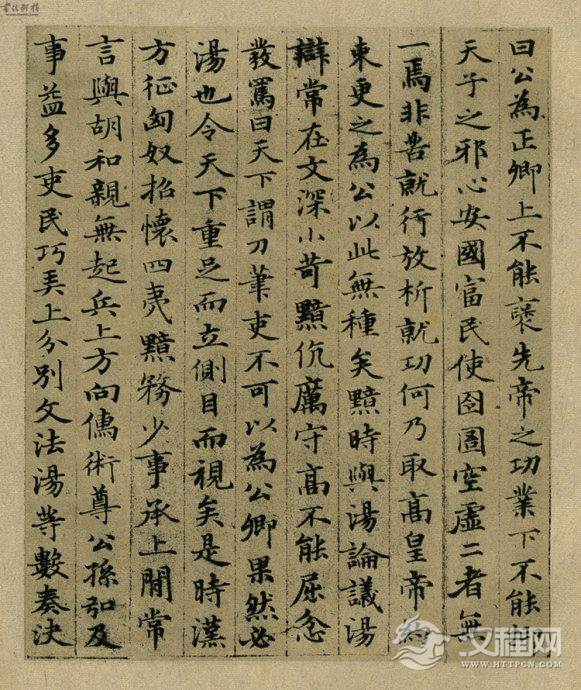 曰公為正卿上不能襃先帝之功業下不能抑
天子之邪心安國富民使囹圄空虛二者無
一焉非苦就行放析就功何乃取高皇帝約
束更之為公以此無種矣黯時與湯論議湯
辯常在文深小苛黯伉厲守高不能屈忿
發罵曰天下謂刀筆吏不可以為公卿果然必
湯也令天下重足而立側目而視矣是時漢
方征匈奴招懷四夷黯務少事承上閒常
言與胡和親無起兵上方向儒術尊公孫弘及
事益多吏民巧弄上分別文法湯等數奏決
汉程网
WWW.HTTPCN.COM